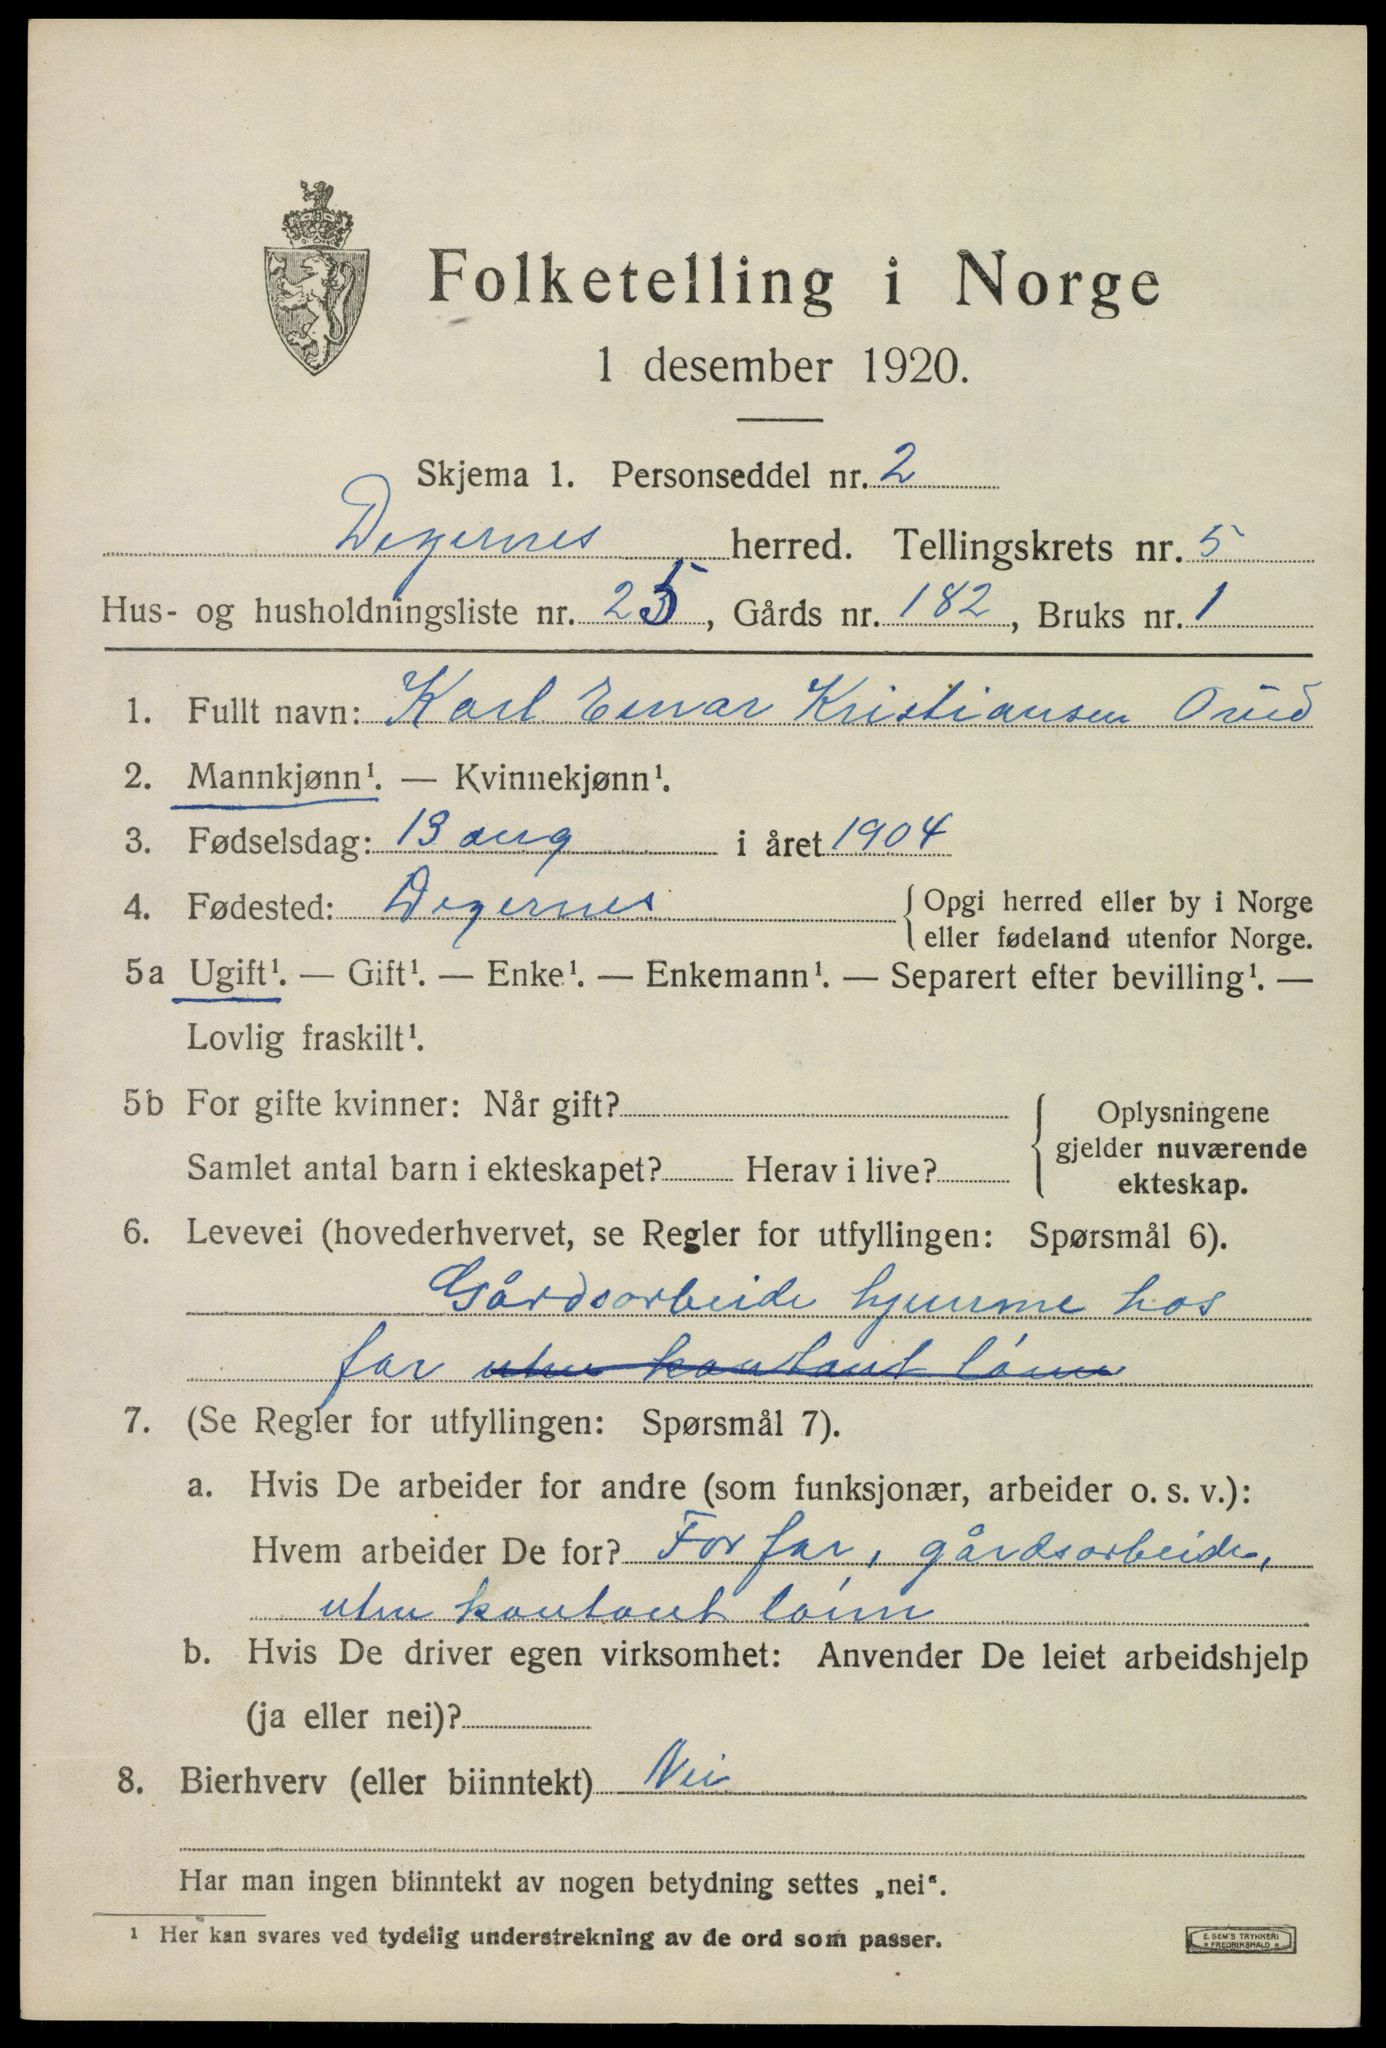 Folketelling i Norge
1 desember 1920.
Skjema 1. Personseddel nr. 2
Degernes herred. Tellingskrets nr. 5
Hus- og husholdningsliste nr. 25, Gårds nr. 182, Bruks nr. 1
1. Fullt navn: Karl Einar Kristiansen
2. Mannkjønn¹. — Kvinnekjønn¹.
3. Fødselsdag: 13 aug i året 1904
4. Fødested: Degernes { Opgi herred eller by i Norge
eller fødeland utenfor Norge.
5a Ugift¹. — Gift¹. — Enke¹. — Enkemann¹. — Separert efter bevilling¹. —
Lovlig fraskilt¹.
5b For gifte kvinner: Når gift? { Oplysningene
gjelder nuværende
Samlet antal barn i ekteskapet? Herav i live?
ekteskap.
6. Levevei (hovederhvervet, se Regler for utfyllingen: Spørsmål 6).
Gårdsarbeide hjemme hos
far uten kontant lønn
7. (Se Regler for utfyllingen: Spørsmål 7).
a. Hvis De arbeider for andre (som funksjonær, arbeider o. s. v.):
Hvem arbeider De for? For far, gårdsarbeide,
uten kontant lønn
b. Hvis De driver egen virksomhet: Anvender De leiet arbeidshjelp
(ja eller nei)?
8. Bierhverv (eller biinntekt) Nei
Har man ingen biinntekt av nogen betydning settes „nei“.
¹ Her kan svares ved tydelig understrekning av de ord som passer.
E. SEM'S TRYKKERI
FREDRIKSHALD